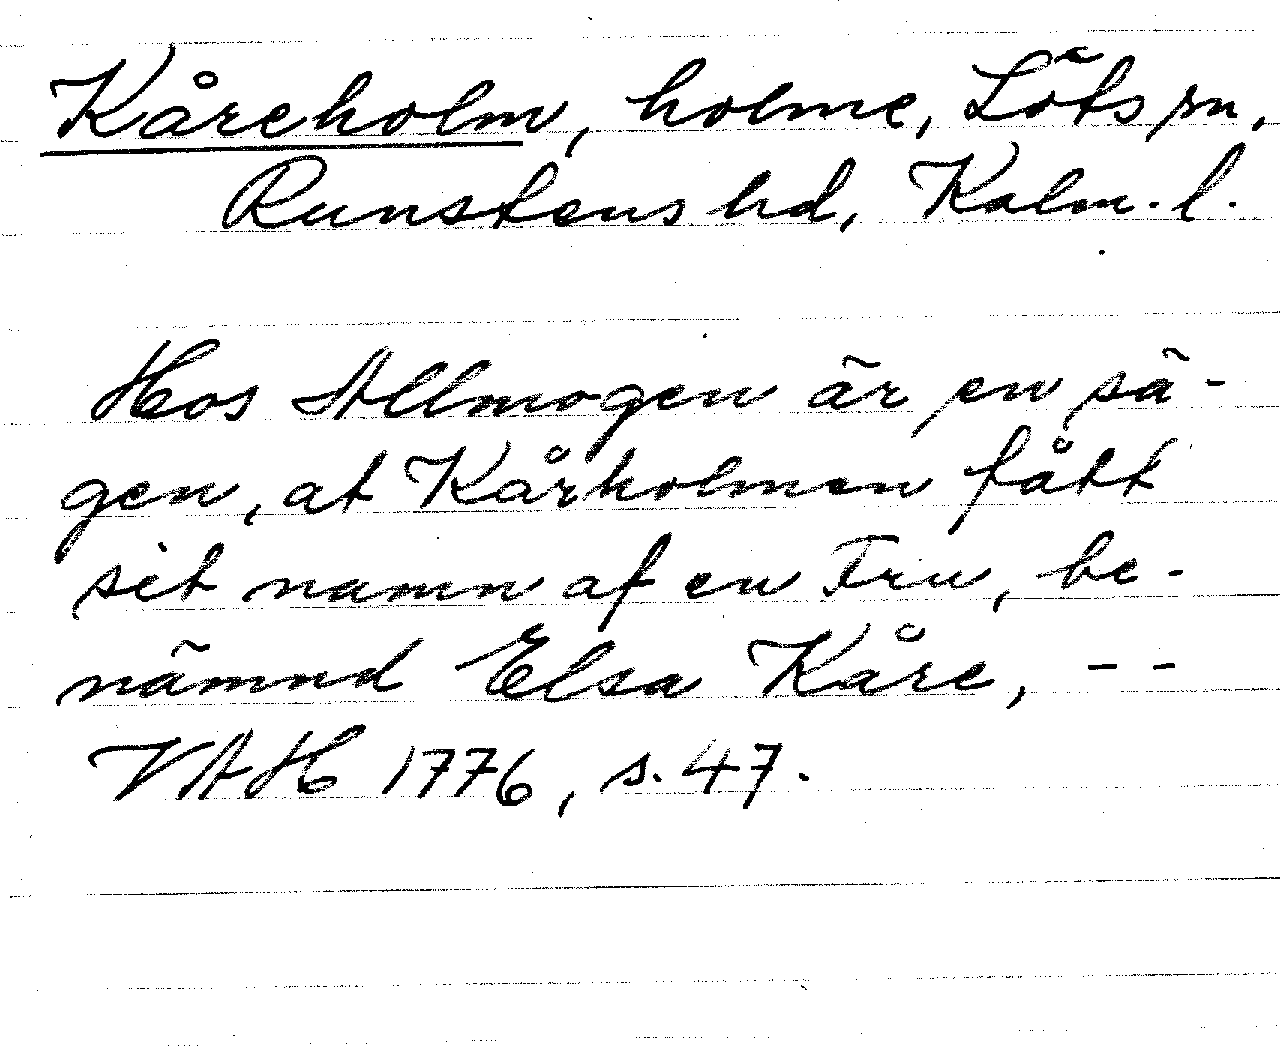 Kåreholm, holme, Löts sn,
Runstens hd, Kalm. l.
Hos Allmogen är en sä-
gen, at Kårholmen fått
sit namn af en Fru, be-
nämnd Elsa Kåre, --
VAH 1776, s. 47.